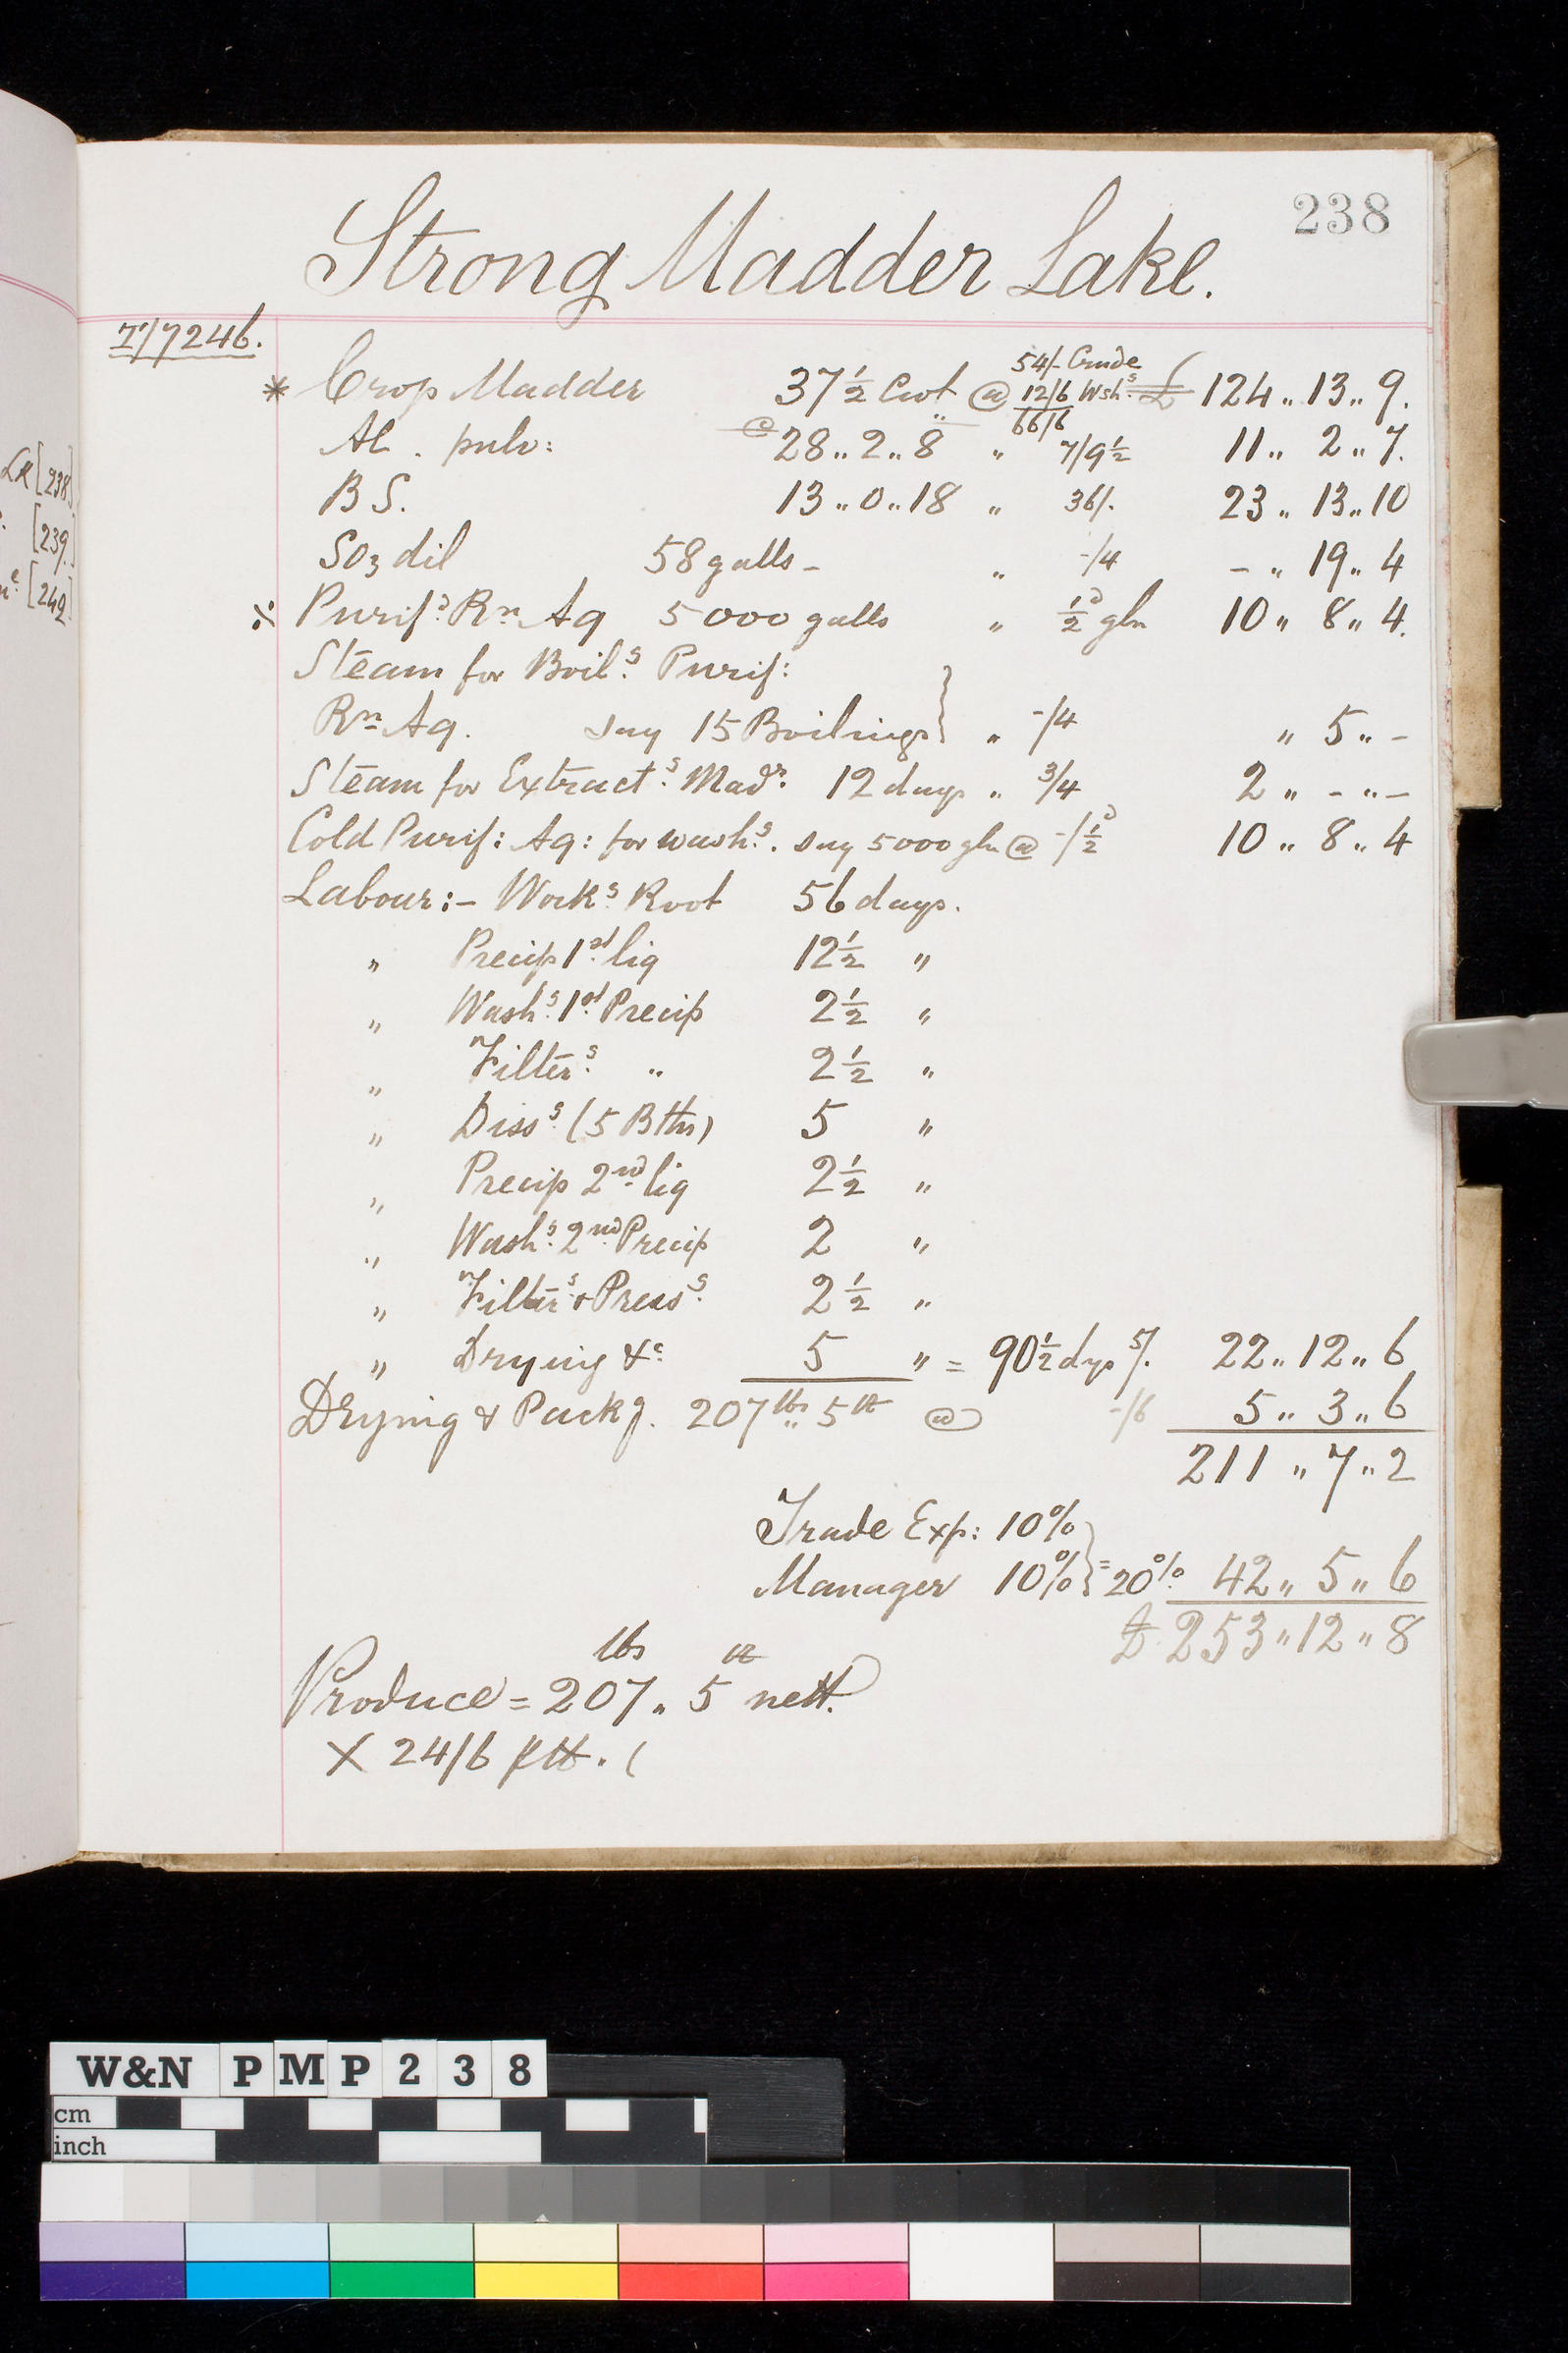 238
Strong Madder Lake.
T/7246.
54/- Crude
* Crop Madder 37½ Cwt @ 12/6 Wshs. £ 124 „ 13 „ 9.
66/6
Al. pulv: @ 28 „ 2 „ 8 „ 7/9½ 11 „ 2 „ 7.
B S. 13 „ 0 „ 18 „ 36/. 23 „ 13 „ 10
SO3 dil 58 galls – „ -/4 – „ 19 „ 4
Purifd. Rn Aq 5000 galls „ ½d gln 10 „ 8 „ 4.
Steam for Boils. Purif:
Rn Aq. say 15 Boilings } „ -/4 „ 5 „ –
Steam for Extracts. Madr. 12 days „ 3/4 2 „ – „ –
Cold Purif: Aq: for washs. say 5000 gln @ -/½d 10 „ 8 „ 4
Labour :– Works. Root 56 days.
„ Precip 1st liq 12½ „
„ Washs. 1st Precip 2½ „
„ Filters. „ 2½ „
„ Disss. (5 Bths) 5 „
„ Precip 2nd liq 2½ „
„ Washs. 2nd Precip 2 „
„ Filters. + Presss. 2½ „
„ Drying &c. 5 „ = 90½ dys 5/. 22 „ 12 „ 6
Drying & Packg. 207 lbs „ 5 lt @ -/6 5 „ 3 „ 6
211 „ 7 „ 2
Trade Exp: 10%
Manager 10% } = 20%. 42 „ 5 „ 6
£ 253 „ 12 „ 8
lbs
Produce = 207 „ 5 nett.
X 24/6
[238]
[239]
[242]
W&N PMP238
cm
inch